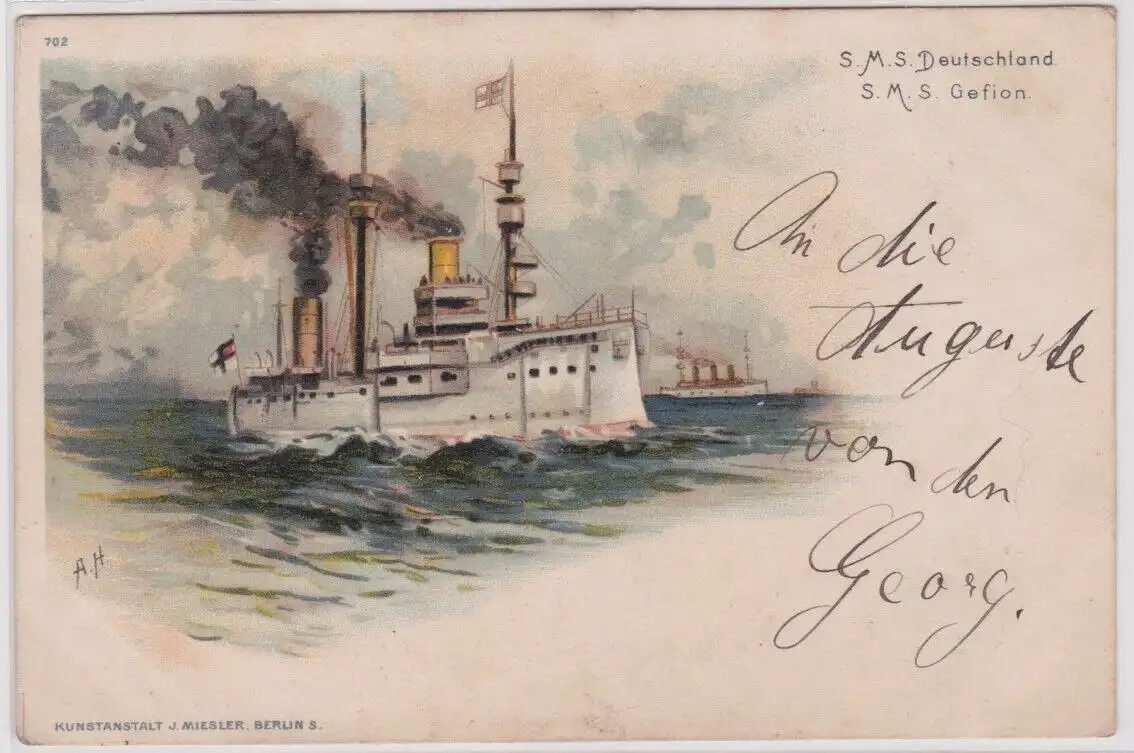 702
S. M. S. Deutschland.
S. M. S. Gefion.
An die
Auguste
von den
Georg.
A.H
KUNSTANSTALT J. MIESLER, BERLIN S.